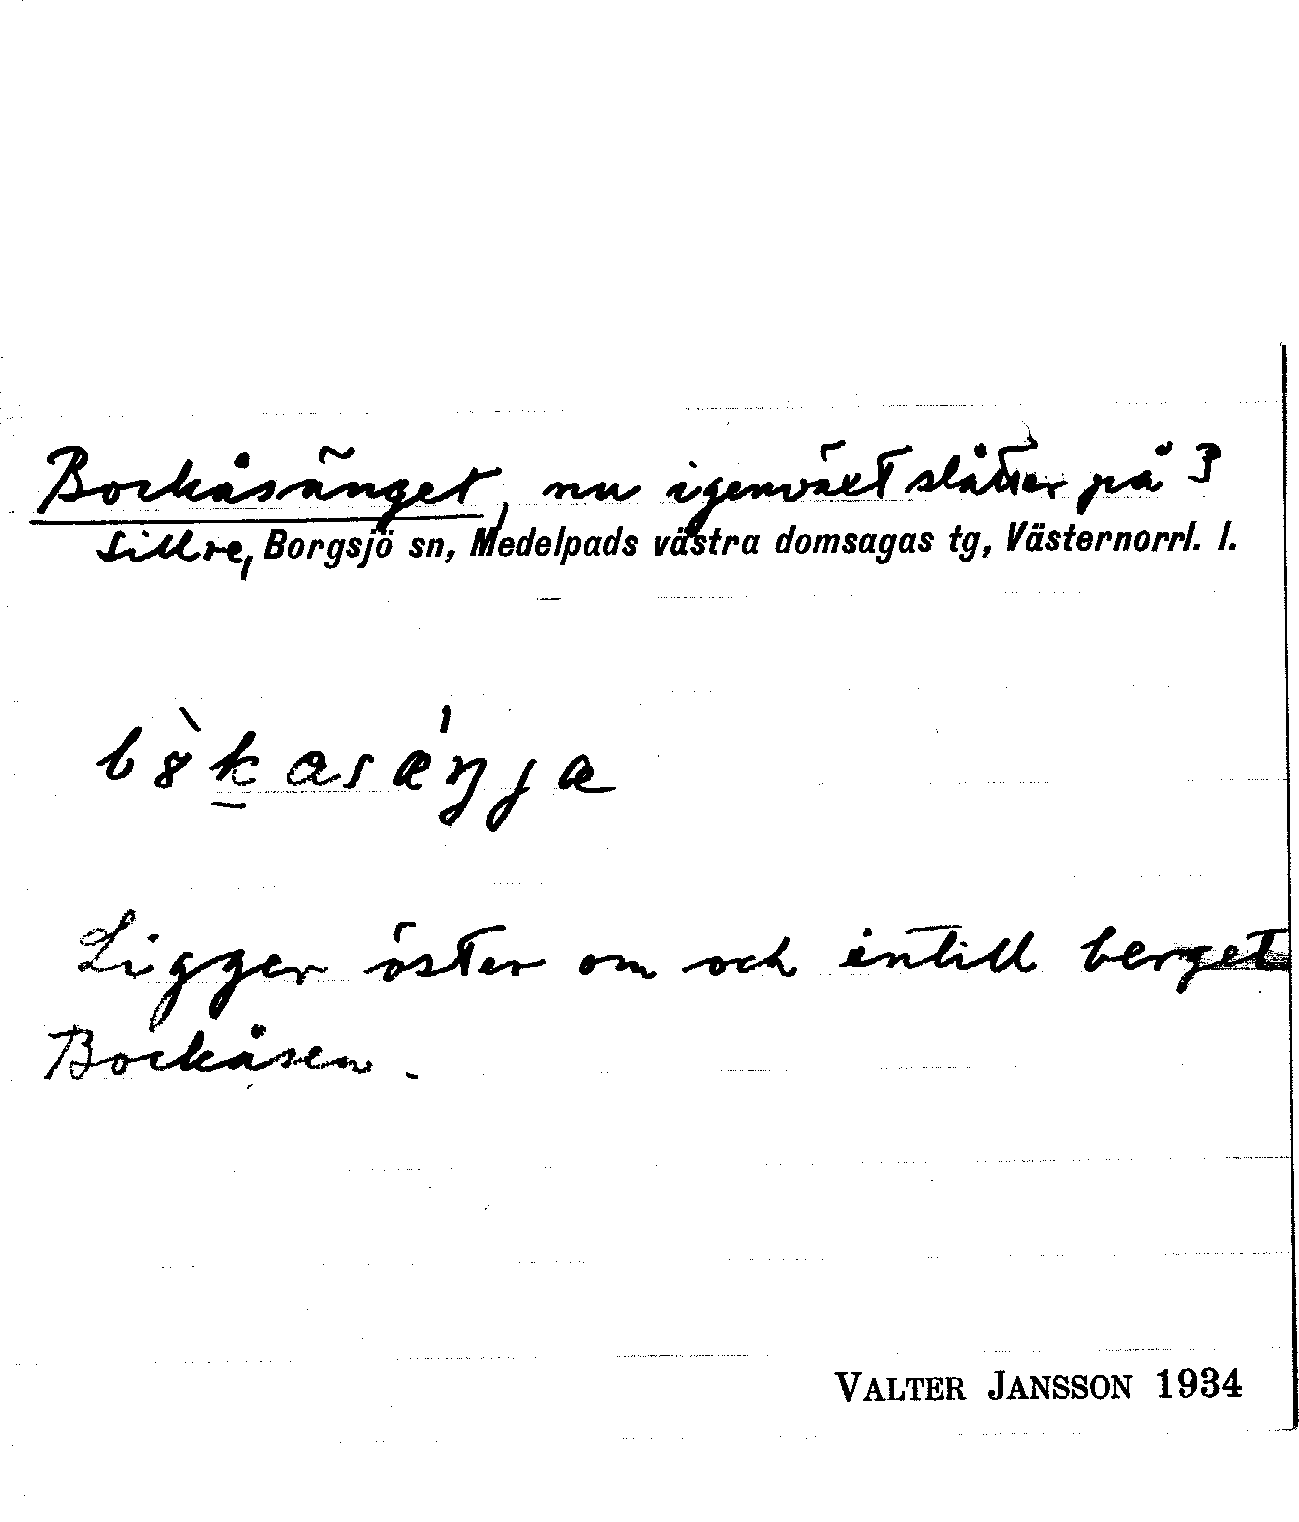 Bockåsänget, nu igenväxt slåtter på 3
Sillre, Borgsjö sn, Medelpads västra domsagas tg, Västernorrl. l.
b8̀kasǽŋja
Ligger öster om och intill berget
Bockåsen.
VALTER JANSSON 1934